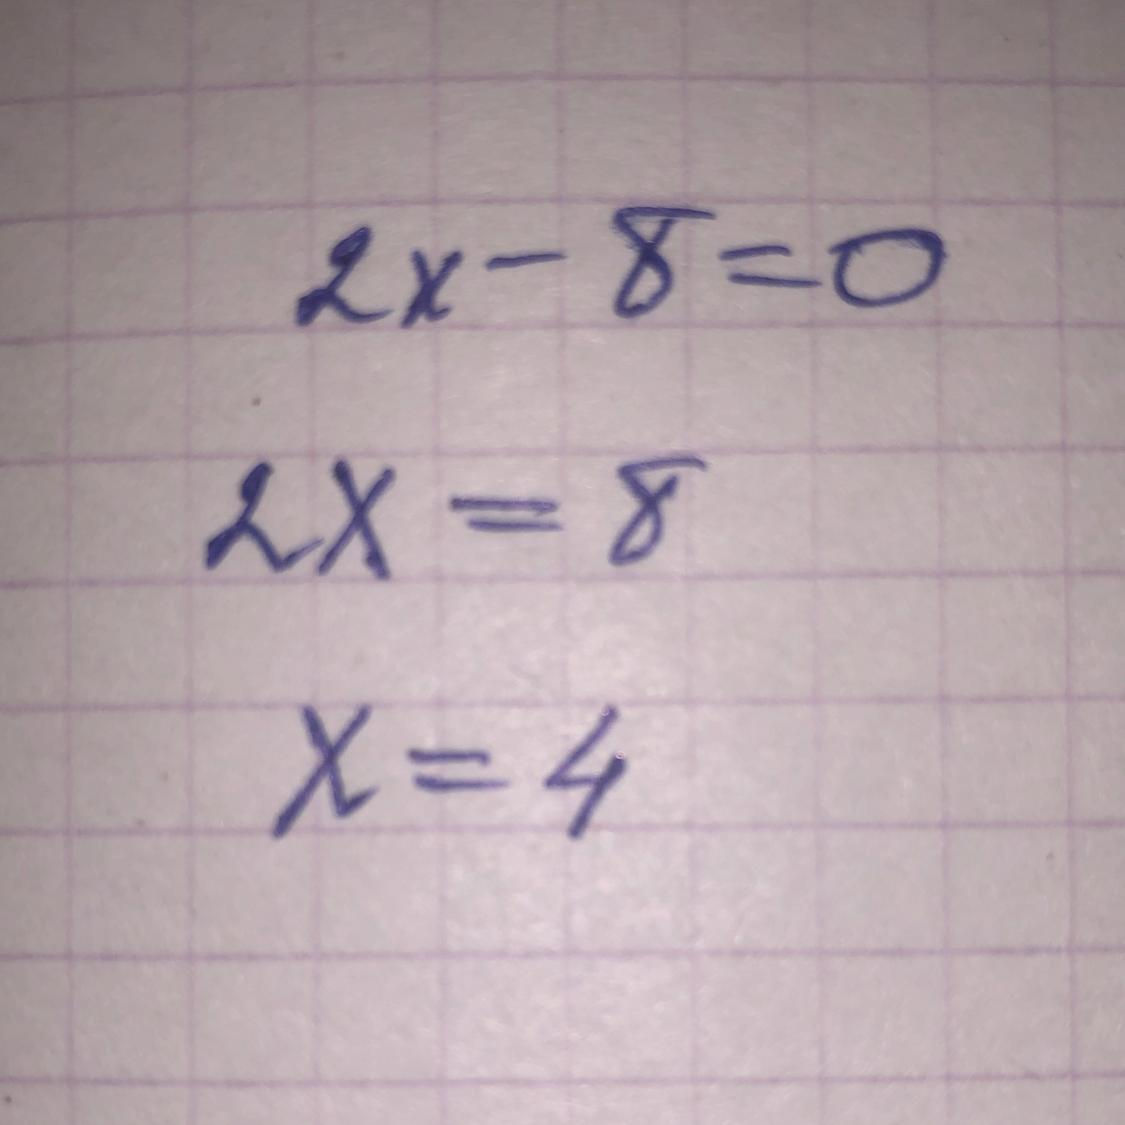 2x - 8 = 0
2x = 8
x = 4